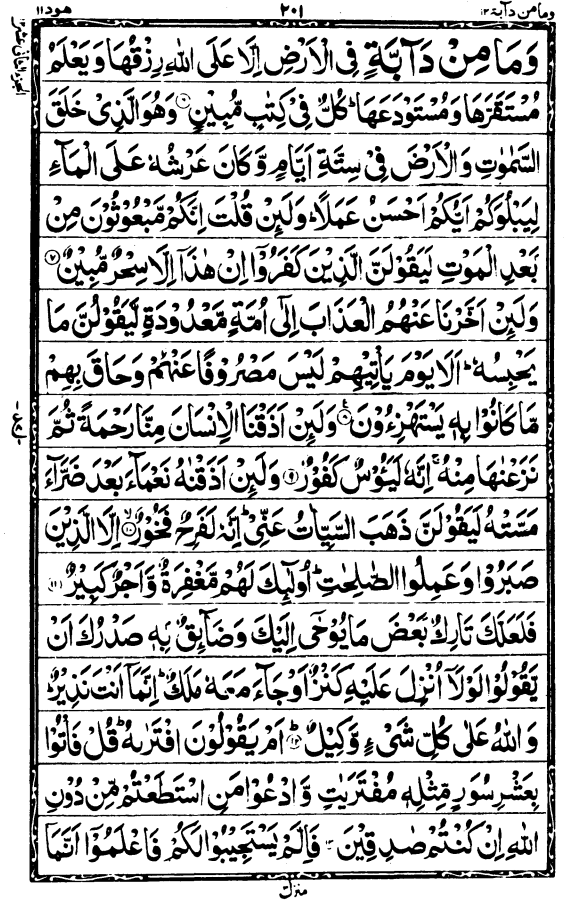 ومامن دآبة ١٢
٢٠١
هود ١١
وَمَا مِنْ دَآبَّةٍ فِي الْاَرْضِ اِلَّا عَلَى اللّٰهِ رِزْقُهَا وَيَعْلَمُ
مُسْتَقَرَّهَا وَمُسْتَوْدَعَهَا ؕ كُلٌّ فِيْ كِتٰبٍ مُّبِيْنٍ ۝۶ وَهُوَ الَّذِيْ خَلَقَ
السَّمٰوٰتِ وَالْاَرْضَ فِيْ سِتَّةِ اَيَّامٍ وَّكَانَ عَرْشُهٗ عَلَى الْمَآءِ
لِيَبْلُوَكُمْ اَيُّكُمْ اَحْسَنُ عَمَلًا ؕ وَلَئِنْ قُلْتَ اِنَّكُمْ مَّبْعُوْثُوْنَ مِنْ
بَعْدِ الْمَوْتِ لَيَقُوْلَنَّ الَّذِيْنَ كَفَرُوْٓا اِنْ هٰذَآ اِلَّا سِحْرٌ مُّبِيْنٌ ۝۷
وَلَئِنْ اَخَّرْنَا عَنْهُمُ الْعَذَابَ اِلٰٓى اُمَّةٍ مَّعْدُوْدَةٍ لَّيَقُوْلُنَّ مَا
يَحْبِسُهٗ ؕ اَلَا يَوْمَ يَاْتِيْهِمْ لَيْسَ مَصْرُوْفًا عَنْهُمْ وَحَاقَ بِهِمْ
مَّا كَانُوْا بِهٖ يَسْتَهْزِءُوْنَ ۝۸ وَلَئِنْ اَذَقْنَا الْاِنْسَانَ مِنَّا رَحْمَةً ثُمَّ
نَزَعْنٰهَا مِنْهُ ۚ اِنَّهٗ لَيَـُٔوْسٌ كَفُوْرٌ ۝۹ وَلَئِنْ اَذَقْنٰهُ نَعْمَآءَ بَعْدَ ضَرَّآءَ
مَسَّتْهُ لَيَقُوْلَنَّ ذَهَبَ السَّيِّاٰتُ عَنِّيْ ؕ اِنَّهٗ لَفَرِحٌ فَخُوْرٌ ۝۱۰ اِلَّا الَّذِيْنَ
صَبَرُوْا وَعَمِلُوا الصّٰلِحٰتِ ؕ اُولٰٓئِكَ لَهُمْ مَّغْفِرَةٌ وَّاَجْرٌ كَبِيْرٌ ۝۱۱
فَلَعَلَّكَ تَارِكٌۢ بَعْضَ مَا يُوْحٰٓى اِلَيْكَ وَضَآئِقٌۢ بِهٖ صَدْرُكَ اَنْ
يَّقُوْلُوْا لَوْلَآ اُنْزِلَ عَلَيْهِ كَنْزٌ اَوْ جَآءَ مَعَهٗ مَلَكٌ ؕ اِنَّمَآ اَنْتَ نَذِيْرٌ ؕ
وَاللّٰهُ عَلٰى كُلِّ شَيْءٍ وَّكِيْلٌ ۝۱۲ اَمْ يَقُوْلُوْنَ افْتَرٰىهُ ؕ قُلْ فَاْتُوْا
بِعَشْرِ سُوَرٍ مِّثْلِهٖ مُفْتَرَيٰتٍ وَّادْعُوْا مَنِ اسْتَطَعْتُمْ مِّنْ دُوْنِ
اللّٰهِ اِنْ كُنْتُمْ صٰدِقِيْنَ فَاِلَّمْ يَسْتَجِيْبُوْا لَكُمْ فَاعْلَمُوْٓا اَنَّمَآ
منزل